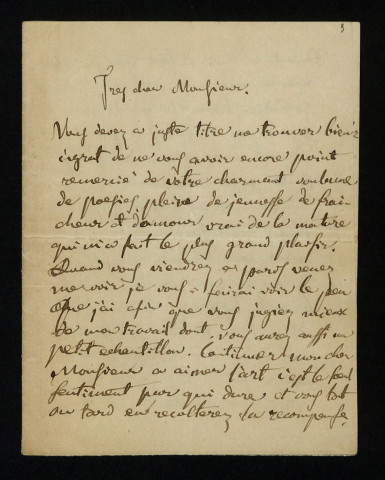 3
Tres cher Monsieur.
Vous devez a juste titre me trouver bien
ingrat de ne vous avoir encore point
remercié de votre charmant volume
de poesies pleine de jeunesse de frai
cheur et d'amour vrai de la nature
qui m'a fait le plus grand plaisir.
Quand vous viendrez a paris venez
me voir je vous ferai voir le peu
que j'ai afin que vous jugiez mieux
de mon travail dont vous avez aussi un
petit echantillon. Continuez mon cher
Monsieur a aimer l'art c'est le seul
sentiment pur qui dure et vous tot
ou tard en recolterez la recompense.